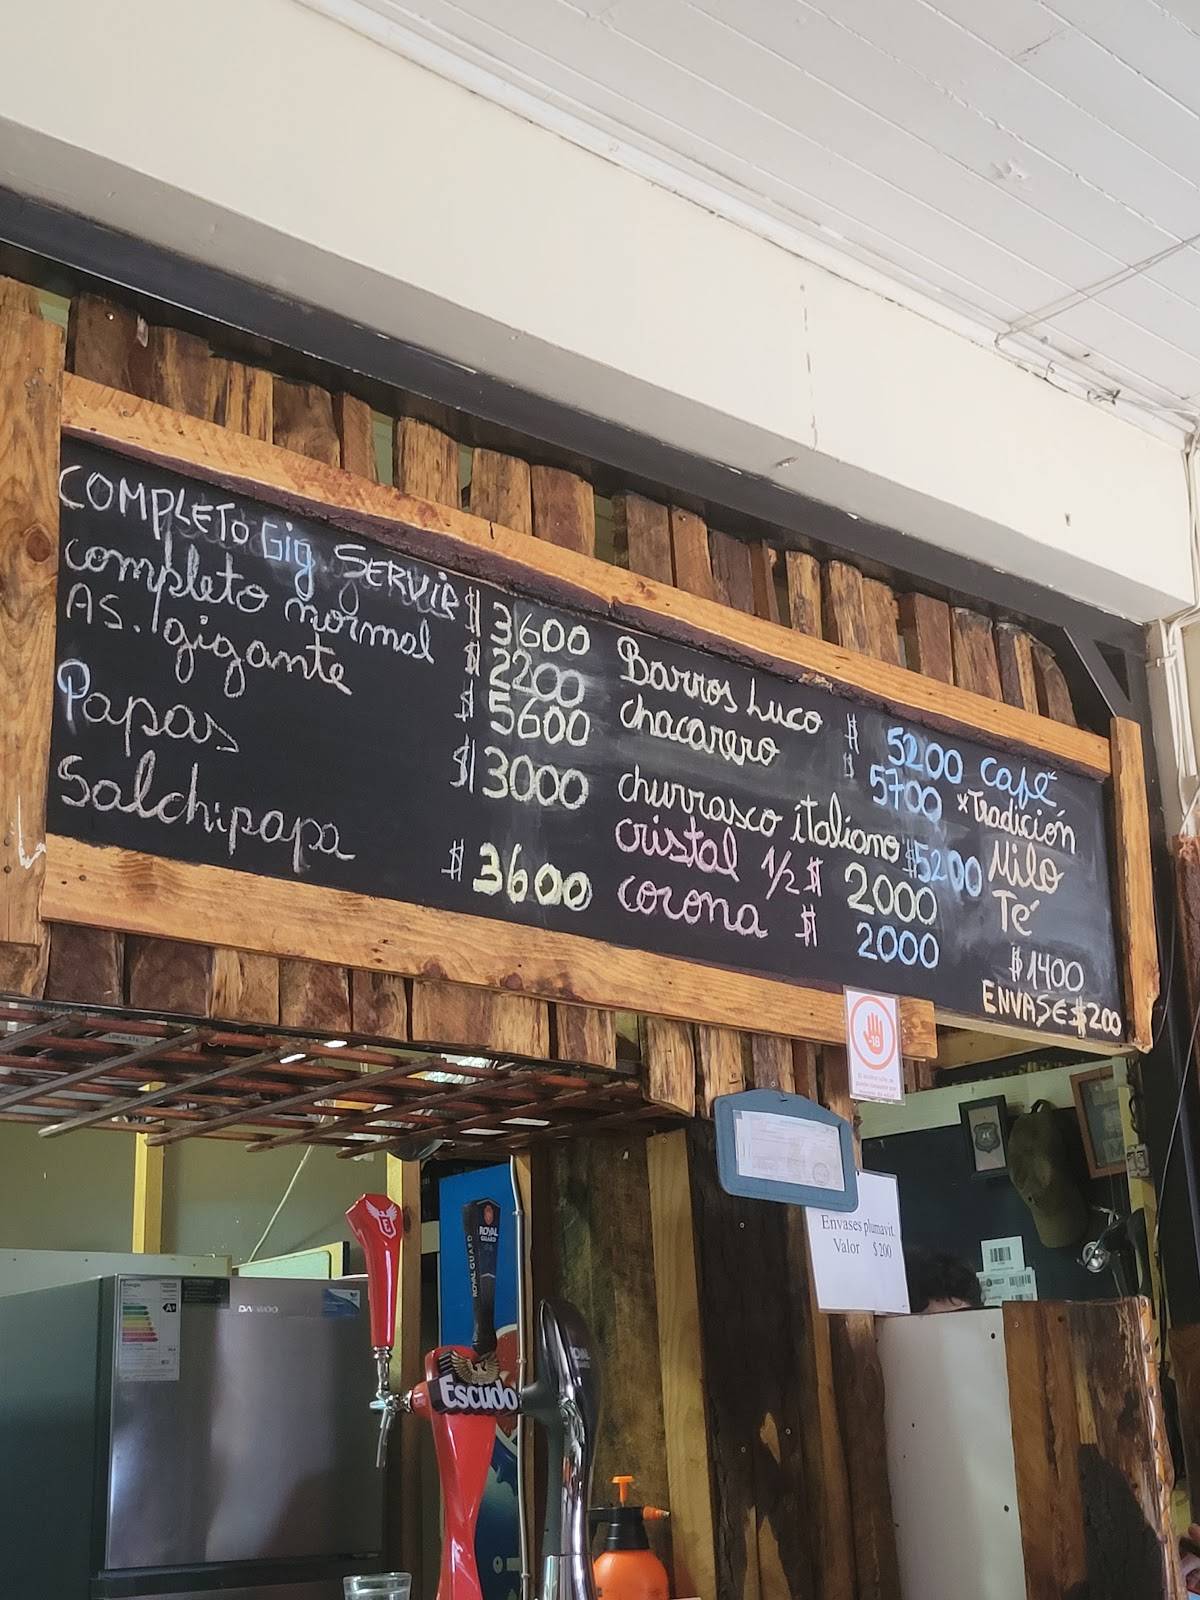 COMPLETO Gig SERVIR $ 3600
completo normal $ 2200
AS. gigante $ 5600
Papas $ 3000
Salchipapa $ 3600
Barros Luco $ 5200
chacarero $ 5700
churrasco italiano $5200
cristal 1/2 $ 2000
corona $ 2000
Café
*Tradición
Milo
Té
$1400
ENVASE $200
-18
Envases plumavit.
Valor $ 200
DAEWOO
A+
ROYAL GUARD
ROYAL GUARD
Escudo